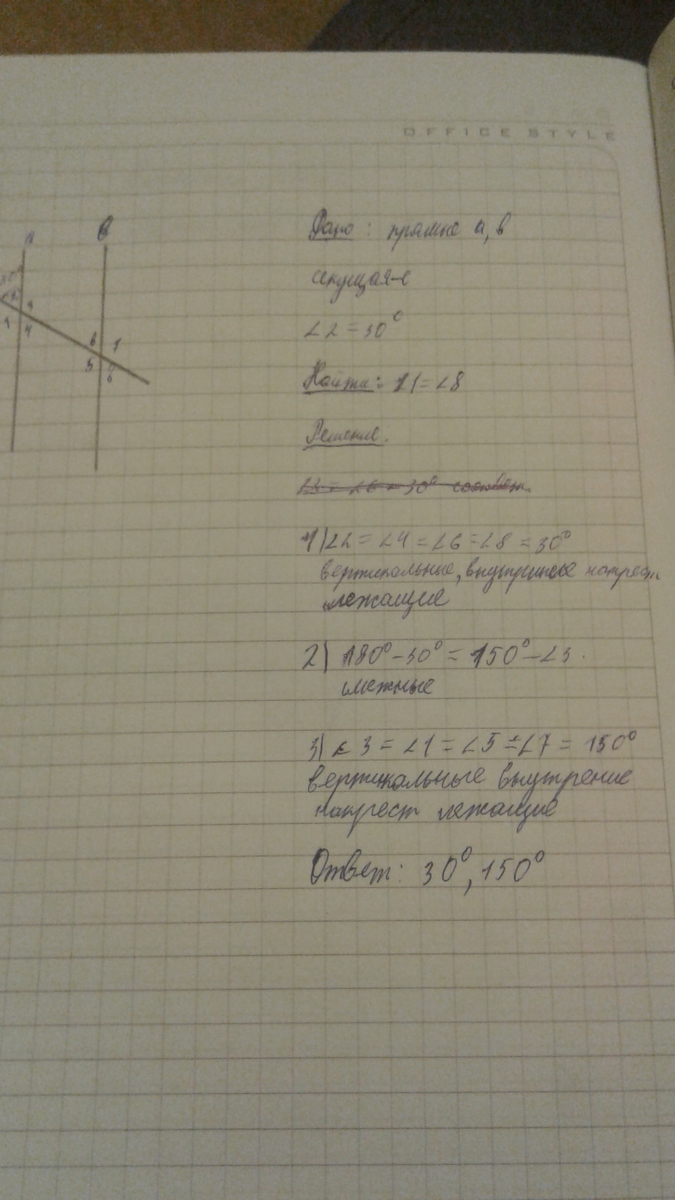 OFFICE STYLE
в
Дано: прямые а, в
секущая-с
∠2=30°
Найти: ∠1=∠8
Решение.
1) ∠2=∠4=∠6=∠8=30°
вертикальные, внутринние накрест
лежащие
2) 180°-30°=150°-∠3.
смежные
3) ∠3=∠1=∠5=∠7=150°
вертикальные внутрение
накрест лежащие
Ответ: 30°, 150°